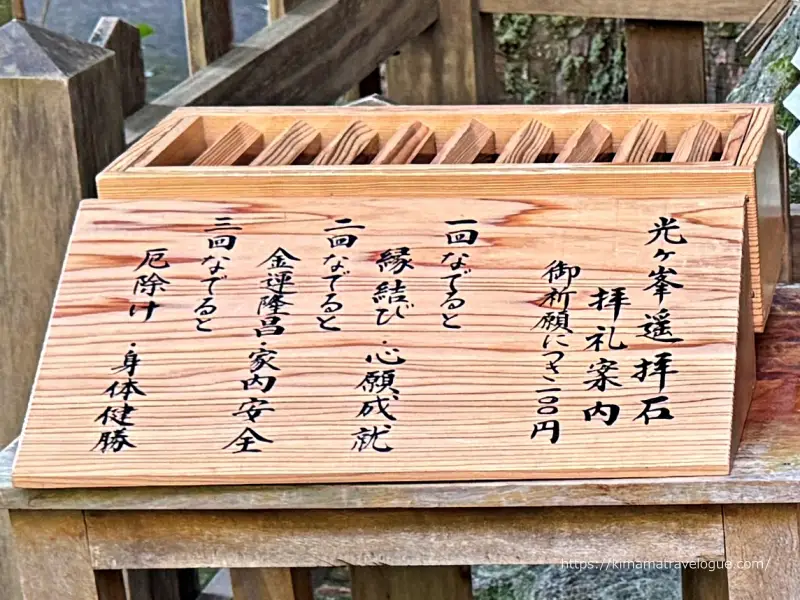 光ヶ峯遥拝石
拝礼案内
御祈願につき二〇〇円
一回なでると
縁結び・心願成就
二回なでると
金運隆昌・家内安全
三回なでると
厄除け・身体健勝
https://kimamatravelogue.com/